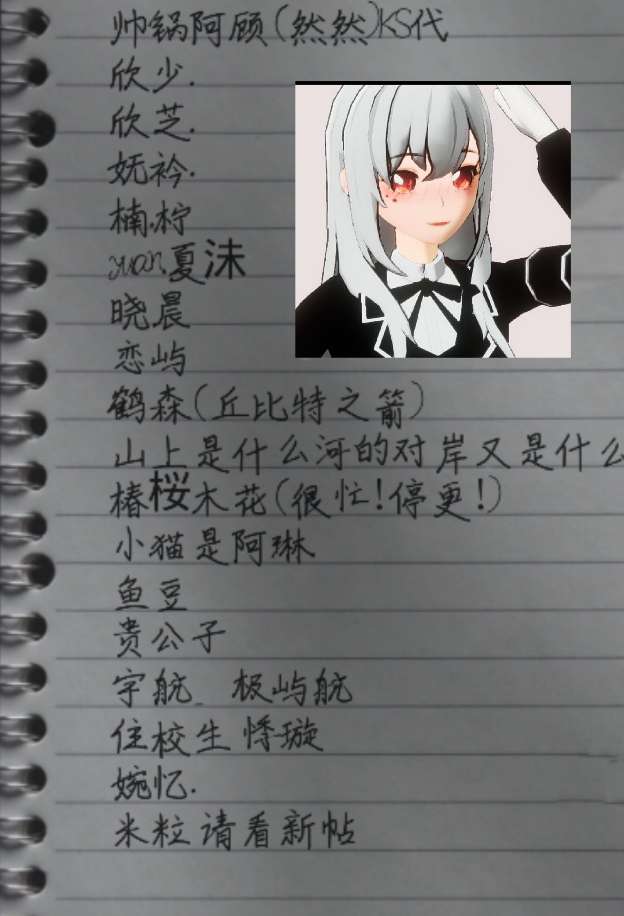 帅锅阿顾(然然)KS代
欣少.
欣芝.
妩衿.
楠.柠
yuan.夏沫
晓晨
恋屿
鹤森(丘比特之箭)
山上是什么河的对岸又是什么
椿桜木花(很忙!停更!)
小猫是阿琳
鱼豆
贵公子
宇航_ 极屿航
住校生 悸璇
婉忆.
米粒请看新帖